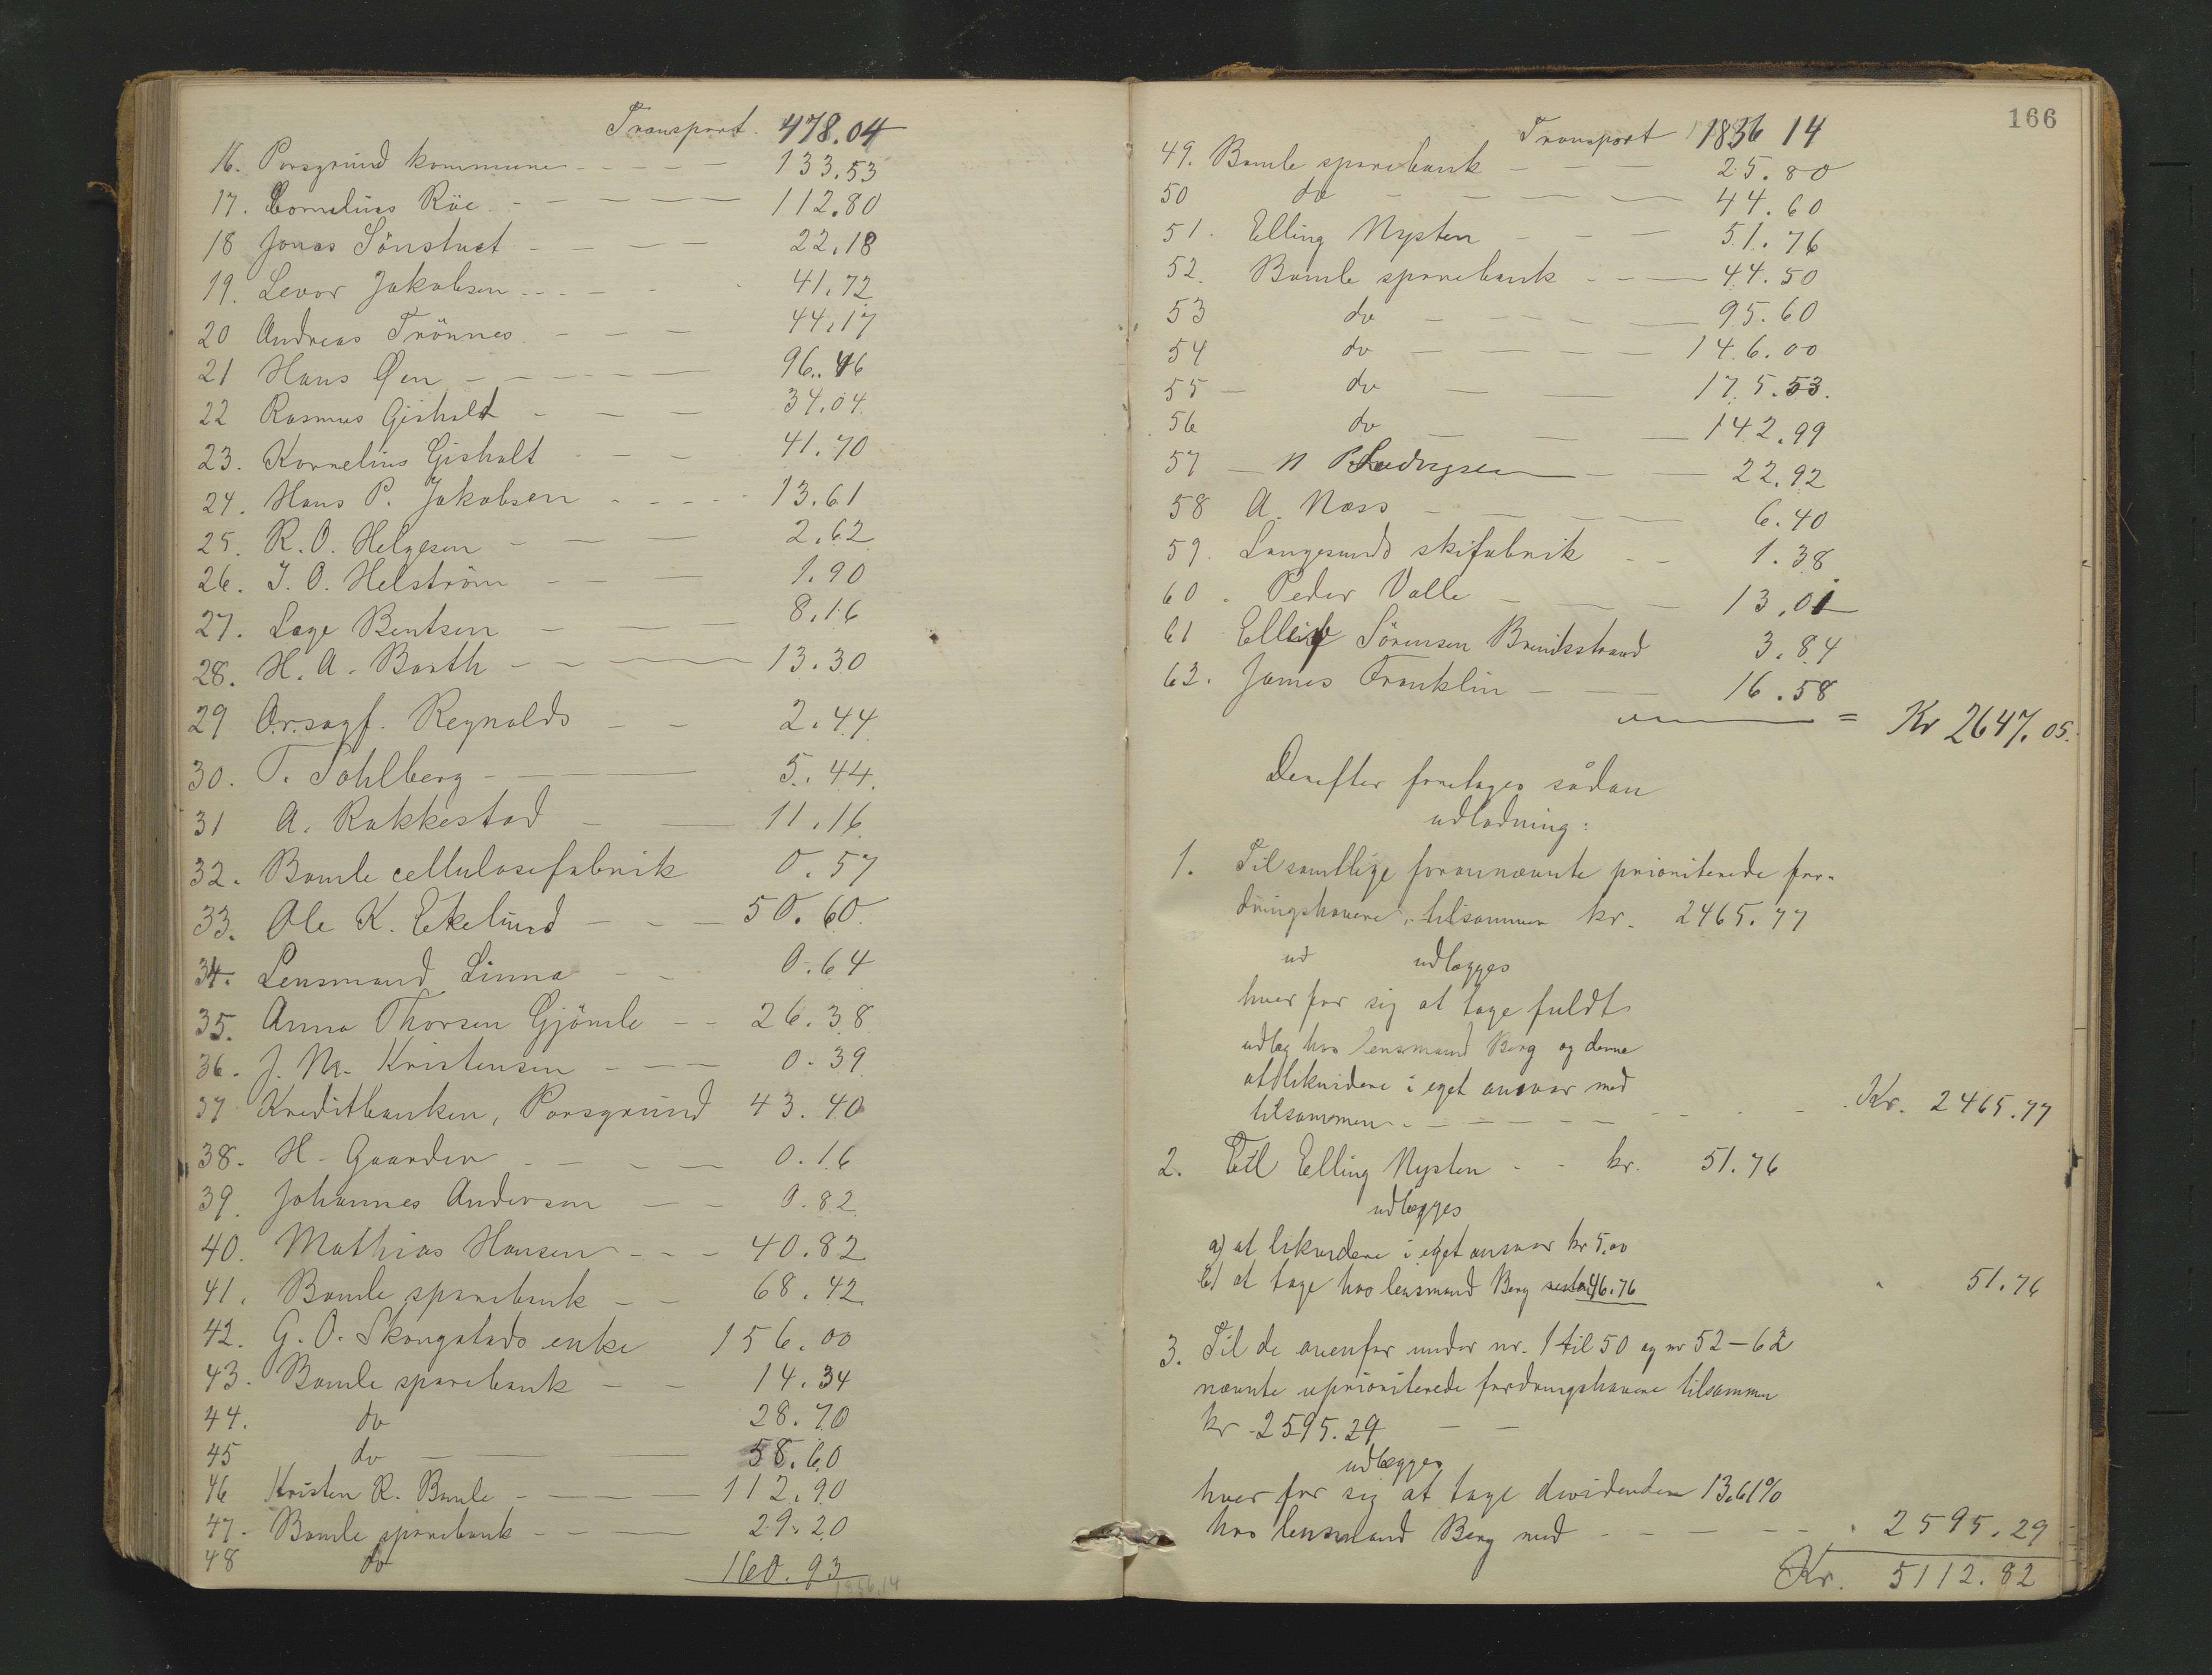 Transport. 478.04
16. Porsgrund kommune - - - - 133.53
17. Cornelius Röe - - - - - 112.80
18 Jonas Sönstvet - - - - 22.18
19. Levor Jakobsen - - - - 41.72
20 Andreas Trönnes - - - 44.17
21 Hans Øen - - - - - 96.46
22 Rasmus Gisholt - - - 34.04
23. Kornelius Gisholt - - - 41.70
24. Hans P. Jakobsen - - - - 13.61
25. R. O. Helgesen - - - 2.62
26. I. O. Helström - - - 1.90
27. Lage Bentsen - - - 8.16
28. H. A. Barth - - - 13.30
29 O.r.sagf. Reynolds - - 2.44
30. T. Sohlberg - - - 5.44.
31 A. Rakkestad - - 11.16
32. Bamle cellulosefabrik 0.57
33. Ole K. Ekelund - - - 50.60
34. Lensmand Linna - - 0.64
35. Anna Thorsen Gjömle - - 26.38
36. J. M. Kristensen - - - 0.39
37 Kreditbanken, Porsgrund 43.40
38. H. Gaarder - - - - 0.16
39. Johannes Andersen - - 0.82
40. Mathias Hansen - - - 40.82
41. Bamle sparebank - - 68.42
42. G. O. Skougstads enke 156.00
43. Bamle sparebank - - 14.34
44. do 28.70
45 do - - - 58.60
46 Kristen R. Bamle - - - - 112.90
47. Bamle sparebank - - - - 29.20
48 do 160.93
166
Transport 1836 14
49. Bamle sparebank - - - 25.80
50 do - - - - 44.60
51. Elling Nysten - - - 51.76
52. Bamle sparebank - - - 44.50
53 do - - - - 95.60
54 do - - - - 146.00
55 - do - - 175.53.
56 do - - - 142.99
57 - N P Ludvigsen - - 22.92
58 A. Næss - - - - 6.40
59. Langesunds skifabrik - - 1.38
60. Peder Valle - - - 13.01
61 Ellef Sörensen 3.84
62. James Franklin - - - 16.58
= Kr 2647.05.
Derefter foretages sådan
udlodning:
1. Til samtlige forannævnte prioriterede for-
dringshavere, tilsammen kr. 2465.77
ud udlægges
hver for sig at tage fuldt
udlæg hos lensmand Berg og denne
at likvidere i eget ansvar med
tilsammen - - - - - - Kr. 2465.77
2. Til Elling Nysten - - kr. 51.76
udlægges
a) at likvidere i eget ansvar kr 5.00
b) at tage hos lensmand Berg resten 46.76 " 51.76
3. Til de ovenfor under nr. 1 til 50 og nr 52-62
nævnte uprioriterede fordringshavere tilsammen
kr. 2595.29 - -
udlægges
hver for sig at tage dividenden 13,61%
hos lensmand Berg med - - - - - " 2595.29
Kr. 5112.82